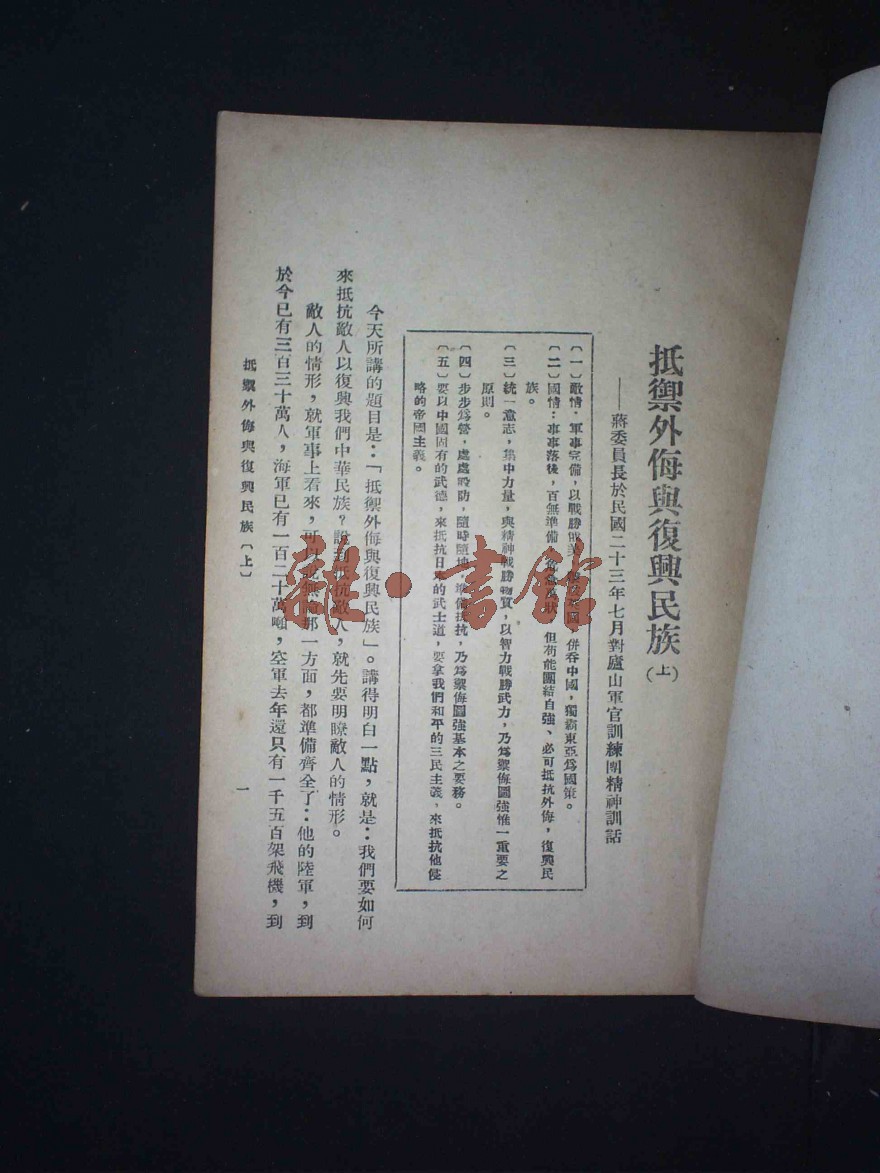 抵禦外侮與復興民族(上)
——蔣委員長於民國二十三年七月對廬山軍官訓練團精神訓話
〔一〕敵情:軍事完備,以戰勝俄美、英國,併吞中國,獨霸東亞為國策。
〔二〕國情:事事落後,百無準備,危急萬狀,但苟能團結自強、必可抵抗外侮,復興民
族。
〔三〕統一意志,集中力量,與精神戰勝物質,以智力戰勝武力,乃為禦侮圖強惟一重要之
原則。
〔四〕步步為營,處處設防,隨時隨地,準備抵抗,乃為禦侮圖強基本之要務。
〔五〕要以中國固有的武德,來抵抗日本的武士道,要拿我們和平的三民主義,來抵抗他侵
略的帝國主義。
今天所講的題目是:「抵禦外侮與復興民族」。講得明白一點,就是:我們要如何
來抵抗敵人以復興我們中華民族?說到抵抗敵人,就先要明瞭敵人的情形。
敵人的情形,就軍事上看來,可以說無論那一方面,都準備齊全了:他的陸軍,到
於今已有三百三十萬人,海軍已有一百二十萬噸,空軍去年還只有一千五百架飛機,到
抵禦外侮與復興民族〔上〕
一
雜·書館